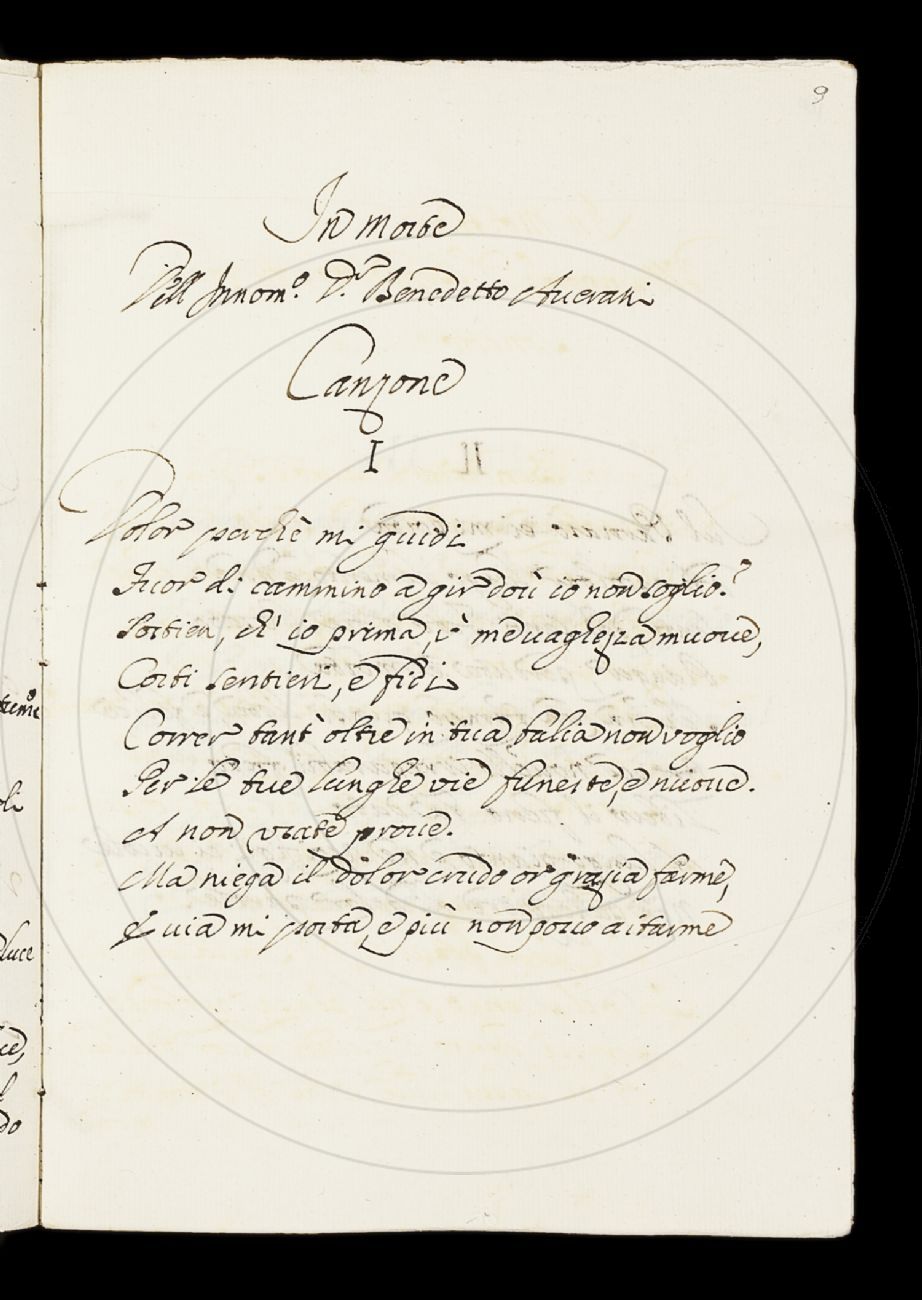 9
In Morte
Dell' Innom.º D.r Benedetto Averani
Canzone
I
Dolor perchè mi guidi
Fuor di cammino a gir dov' io non soglio?
Sostien, ch' io prima, v' me vaghezza muove,
Corti sentieri, e fidi
Correr tant' oltre in tua balìa non voglio
Per le tue lunghe vie funeste, e nuove.
A non usate prove.
Ma niega il dolor crudo or grazia farme,
E via mi porta, e più non posso aitarme